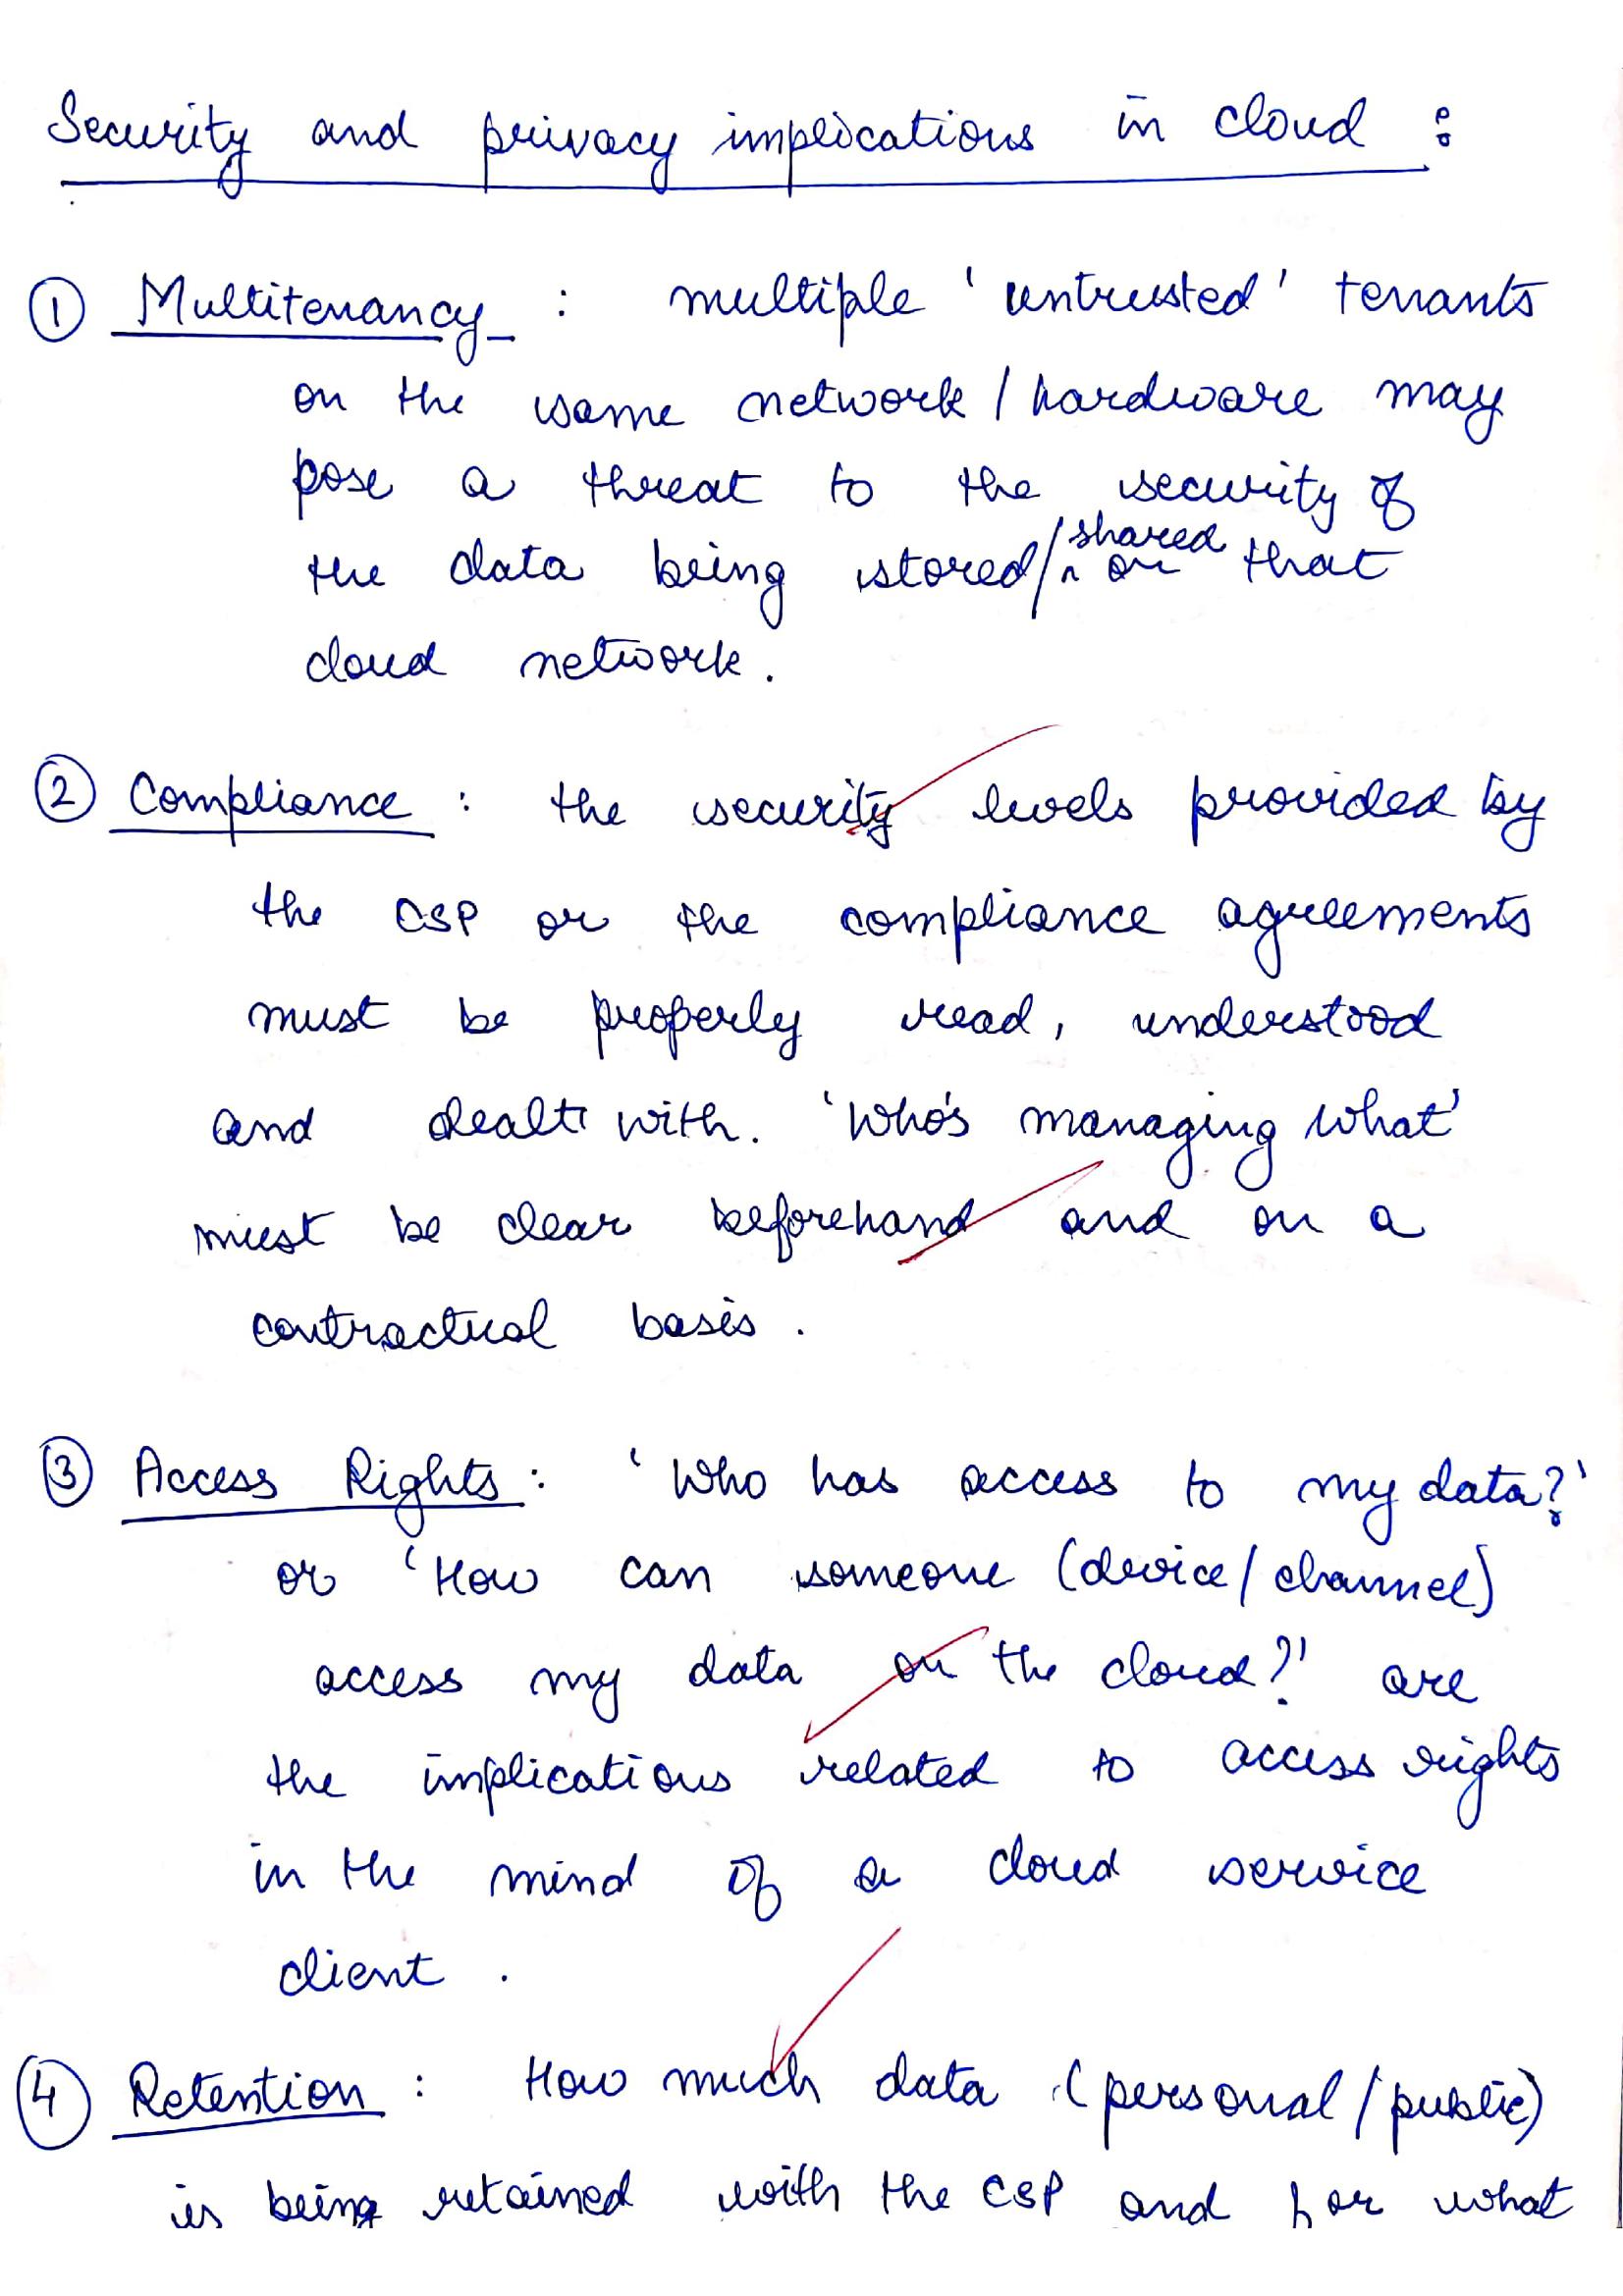 Security and privacy implications in cloud :
① Multitenancy : multiple 'untrusted' tenants
on the same network / hardware may
pose a threat to the security of
the data being stored/ shared on that
cloud network.
② Compliance : the security levels provided by
the CSP or the compliance agreements
must be properly read, understood
and dealt with. 'Who's managing what'
must be clear beforehand and on a
contractual basis.
③ Access Rights : 'Who has access to my data?'
or 'How can someone (device / channel)
access my data on the cloud?' are
the implications related to access rights
in the mind of a cloud service
client.
④ Retention : How much data (personal / public)
is being retained with the CSP and for what